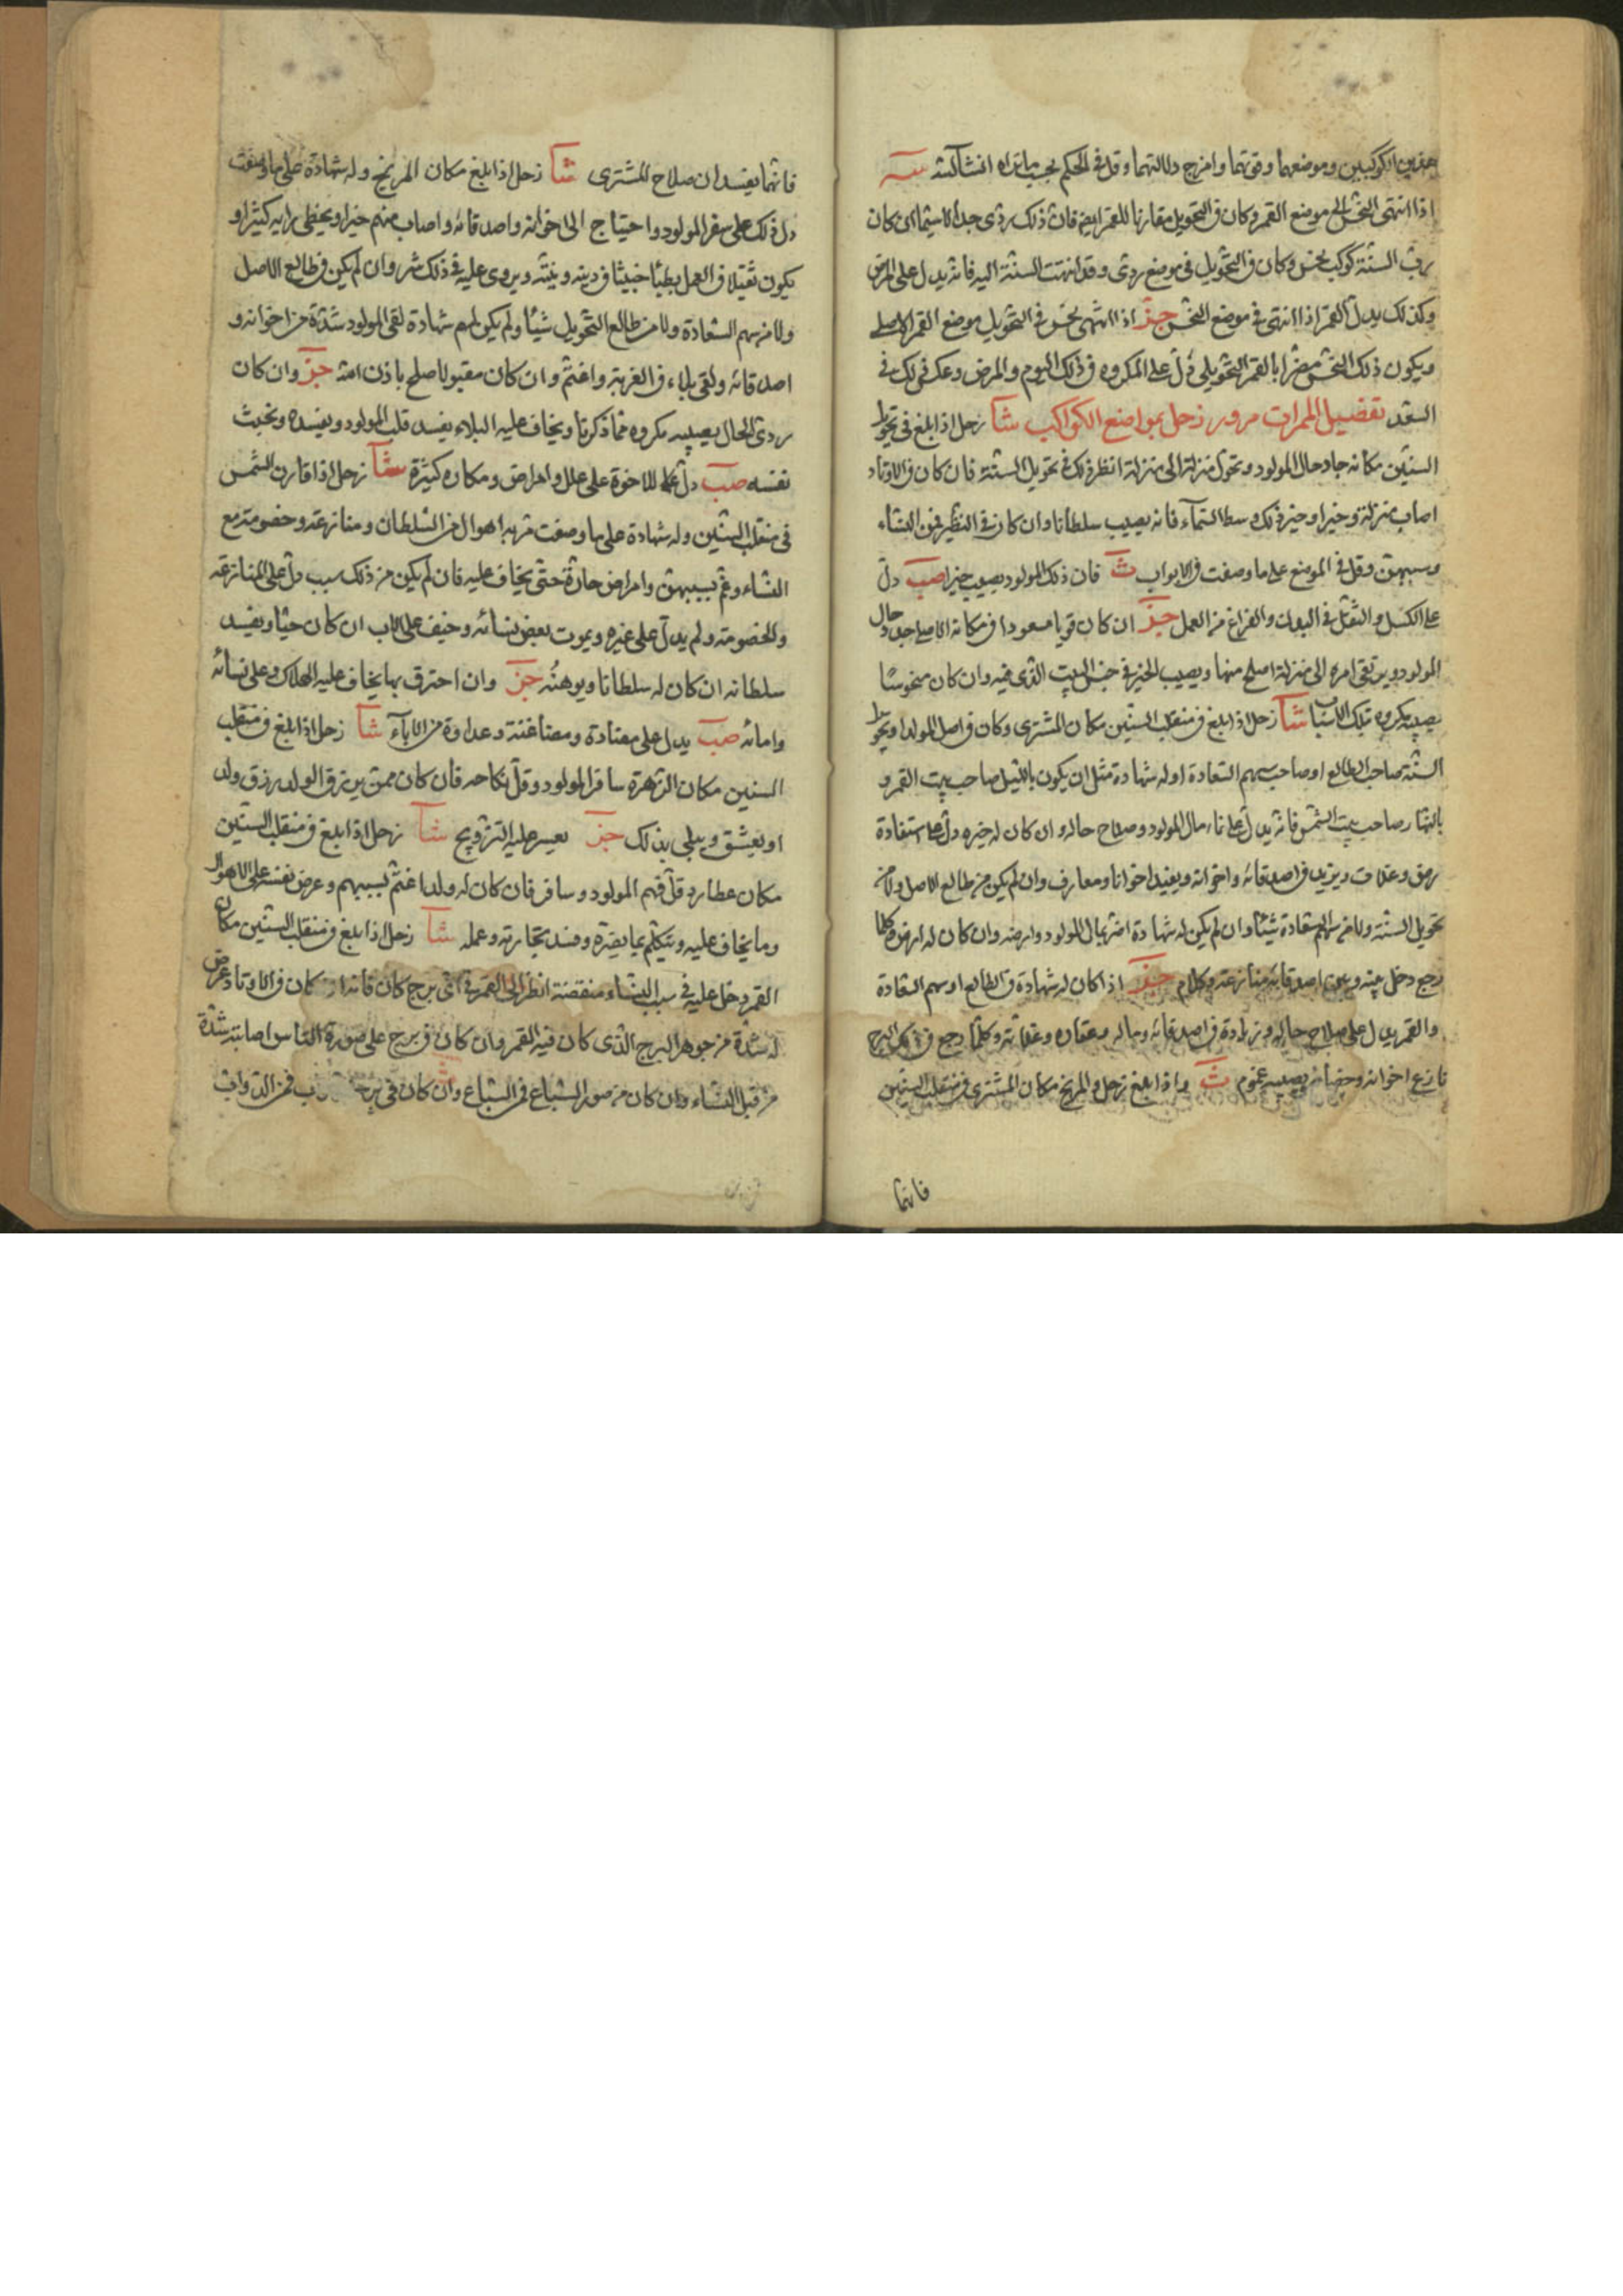 هذين الكوكبين وموضعهما وقوتهما وامزج دلالتهما وقل في الحكم بحسب ما تراه انشآ الله سـه
اذا انتهى النحس الى موضع القمر وكان في التحويل مقارنا للقمر ايضا فان ذلك ردى جدا لا سيما ان كان
رب السنة كوكب نحس وكان في التحويل في موضع ردى وقد انتهت السنة اليه فانه يدل على المرض
وكذلك يدل القمر اذا انتهى في موضع النحس جز اذا انتهى نحس في التحويل موضع القمر الاصلي
ويكون ذلك النحس مضرا بالقمر التحويلي دل على المكروه في ذلك اليوم والمرض وعكس ذلك في
السعد تفضيل الممرات مرور زحل بمواضع الكواكب شآ زحل اذا بلغ في تحويل
السنين مكانه جاد حال المولود وتحول منزلة الى منزلة انظر ذلك في تحويل السنة فان كان في الاوتاد
اصاب منزلة وخيرا وخير ذلك وسط السمآء فانه يصيب سلطانا وان كان في النظير فمن النساء
وسببهن وقل في الموضع على ما وصفت في الابواب ث فان ذلك المولود يصيب خيرا صب دل
على الكسل والثقل في البدن والفراغ من العمل جز ان كان قويا مسعودا في مكانه الاصلي جاد حال
المولود ويرتقى امره الى منزلة اصلح منها ويصيب الخير في جنس البيت الذى فيه وان كان منحوسا
يصيبه مكروه بتلك الاسباب شآ زحل اذا بلغ في منقلب السنين مكان المشترى وكان في اصل المولد او تحويل
السنة صاحب الطالع او صاحب سهم السعادة او له شهادة مثل ان يكون بالليل صاحب بيت القمر و
بالنهار صاحب بيت الشمس فانه يدل على نماء مال المولود وصلاح حاله وان كان له خيره دل على استفادة
رزق وعلامت ويزيد في اصدقائه واخوانه ويفيد اخوانا ومعارف وان لم يكن من طالع الاصل ولا من
تحويل السنة ولا من سهم سعادة شيئا وان لم يكن له شهادة اضر بمال المولود وارضه وان كان له ارض وكلما
رجع دخل بينه وبين اصدقائه منازعة وكلام جز اذا كان له شهادة في الطالع او سهم السعادة
والقمر يدل على صلاح حاله وزيادة في اصدقائه وماله وعقاره وغلاته وكلما رجع في ذلك البرج
نازع اخوانه ويصيبه غموم ث واذا بلغ زحل والمريخ مكان المشترى في منقلب السنين
فانهما
فانهما يفسدان صلاح المشترى شآ زحل اذا بلغ مكان المريخ وله شهادة على ما وصفت
دل ذلك على سفر المولود واحتياج الى اخوانه واصدقائه واصاب منهم خيرا ويخطى برايه كثيرا و
يكون ثقيلا في العمل بطيئا خبيثا في دينه ونيته ويروى عليه في ذلك شر وان لم يكن في طالع الاصل
ولا من سهم السعادة ولا من طالع التحويل شيئا ولم يكن لهم شهادة لقى المولود شدة من اخوانه و
اصدقائه ولقى بلاء في الغربة واغتم وان كان مقبولا صلح باذن الله جز وان كان
ردى الحال يصيبه مكروه مما ذكرنا ويخاف عليه البلاء يفسد قلب المولود ويفسده وتخبث
نفسه صب دل على للاخوة على علل وامراض ومكاره كثيرة شآ زحل اذا قارن الشمس
في منقلب السنين وله شهادة على ما وصفت فربه اهوال من السلطان ومنازعة وخصومة مع
النساء وغم بسببهن وامراض حارة حتى يخاف عليه فان لم يكن من ذلك سبب دل على المنازعة
والخصومة ولم يدل على غيره ويموت بعض نسائه وخيف على الاب ان كان حيا ويفسد
سلطانه ان كان له سلطانا ويوهنه جز وان احترق بها يخاف عليه الهلاك وعلى نسائه
وامائه صب يدل على مضادة ومضاغنة وعداوة من الابآء شآ زحل اذا بلغ في منقلب
السنين مكان الزهرة سافر المولود وقل نكاحه فان كان ممن يرزق الولد رزق ولد
او يعشق ويبلى بذلك جز يعسر عليه التزويج شآ زحل اذا بلغ في منقلب السنين
مكان عطارد قل فهم المولود وسافر فان كان له ولد اغتم بسببهم وعرض نفسه على الاهوال
وما يخاف عليه ويتكلم بما يضره وفسد تجارته وعمله شآ زحل اذا بلغ في منقلب السنين مكان
القمر دخل عليه في سبب النساء منقصة انظر الى القمر في اى برج كان فانه ان كان في الاوتاد عرض
له شدة من جوهر البرج الذى كان فيه القمر وان كان في برج على صورة الناس اصابته شدة
من قبل النساء وان كان من صور السباع فمن السباع وان كان في برج فمن الدواب